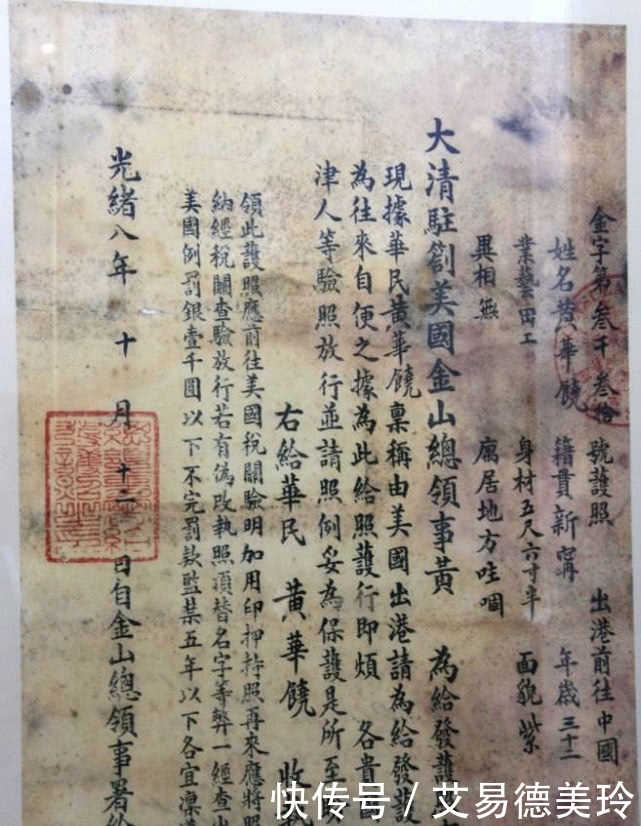 金字第叁千叁拾 號護照 出港前往中國
姓名黃華饒 籍貫新甯 年歲三十二
業藝田工 身材五尺六寸半 面貌紫
異相無 寓居地方哇啁
大清駐劄美國金山總領事黃 為給發護
現據華民黃華饒稟稱由美國出港請為給發護
為往來自便之據為此給照護行即煩 各貴國
津人等驗照放行並請照例妥為保護是所至
右給華民 黃華饒 收執
領此護照應前往美國稅關驗明加用印押持照再來應將照
納經稅關查驗放行若有偽改執照頂替名字等弊一經查出
美國例罰銀壹千圓以下不完罰款監禁五年以下各宜凜遵
光緒八年 十 月 十二 日自金山總領事署給
快传号/艾易德美玲